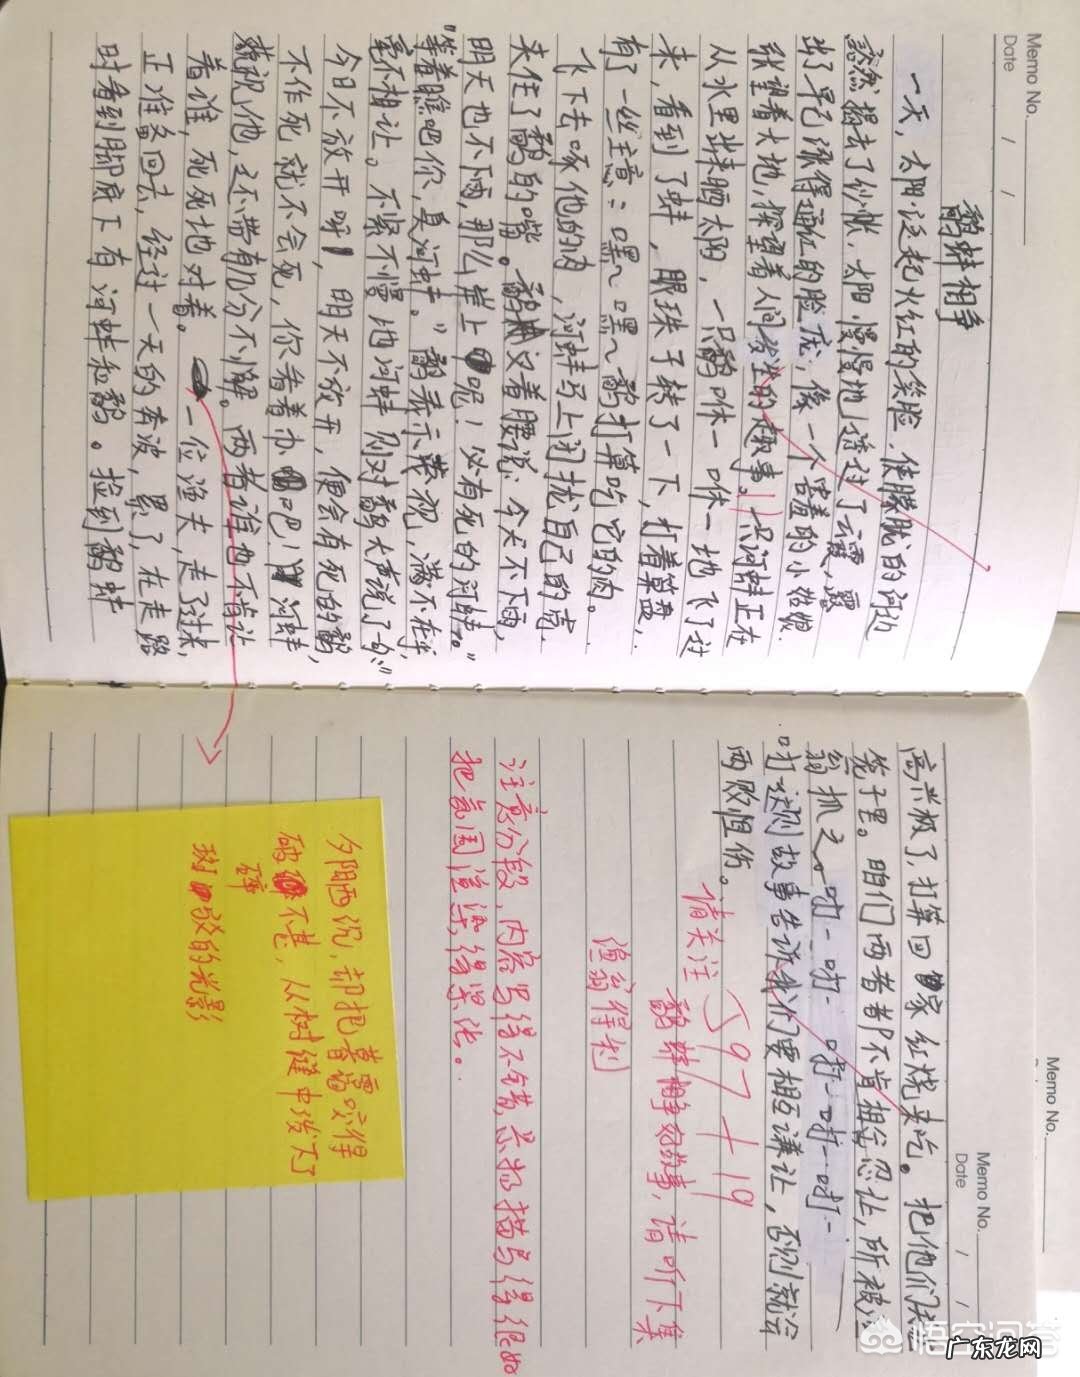 Memo No.
Date / /
鹬蚌相争
一天,太阳泛起火红的笑脸,使朦胧的河边
忽然揭去了纱帐,太阳慢慢地透过了云霞,露
出了早已涨得通红的脸庞,像一个害羞的小姑娘
张望着大地,探望着人间发生的趣事。一只河蚌正在
从水里出来晒太阳,一只鹬咻一咻一地飞了过
来,看到了蚌,眼珠子转了一下,打着算盘,
有了一丝主意:嘿~嘿~鹬打算吃它的肉。
飞下去啄他的肉,河蚌马上闭拢自己的壳
夹住了鹬的嘴。鹬叉着腰说:今天不下雨,
明天也不雨,那么岸上呢!必有死的河蚌。”
“等着瞧吧你,臭河蚌。”鹬表示藐视,满不在乎,
毫不相让。不紧不慢地河蚌则对鹬大声说了句:“
今日不放开呀!,明天不放开,便会有死的鹬,
不作死就不会死,你看着办吧!”河蚌
藐视他,还带有几分不懈。两者谁也不肯让
着谁,死死地对着。一位渔夫,走了过来,
正准备回去,经过一天的奔波,累了,在走路
时看到脚底下有河蚌和鹬。捡到鹬蚌
Memo No.
Date / /
高兴极了,打算回家红烧来吃。把他们
笼子里。咱们两者都不肯相忍让,所被渔
翁抓之。叻一叻一叻一叻一叻一
叻这则故事告诉我们要相互谦让,否则就会
两败俱伤。
请关注 597+19
鹬蚌相争的故事,请听下集
渔翁得利
注意分段,内容写得不错,景物描写得很好
把氛围渲染得紧张。
夕阳西沉,却把暮霭咬得
破碎不堪,从树缝中泼下了
斑驳的光影
Memo No.
悟空问答
广东龙网